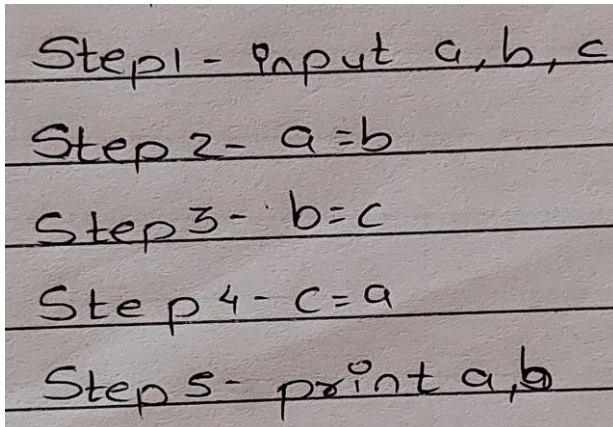 Step1 - input a, b, c
Step 2 - a=b
Step 3 - b=c
Step 4 - c=a
Step 5 - print a,b